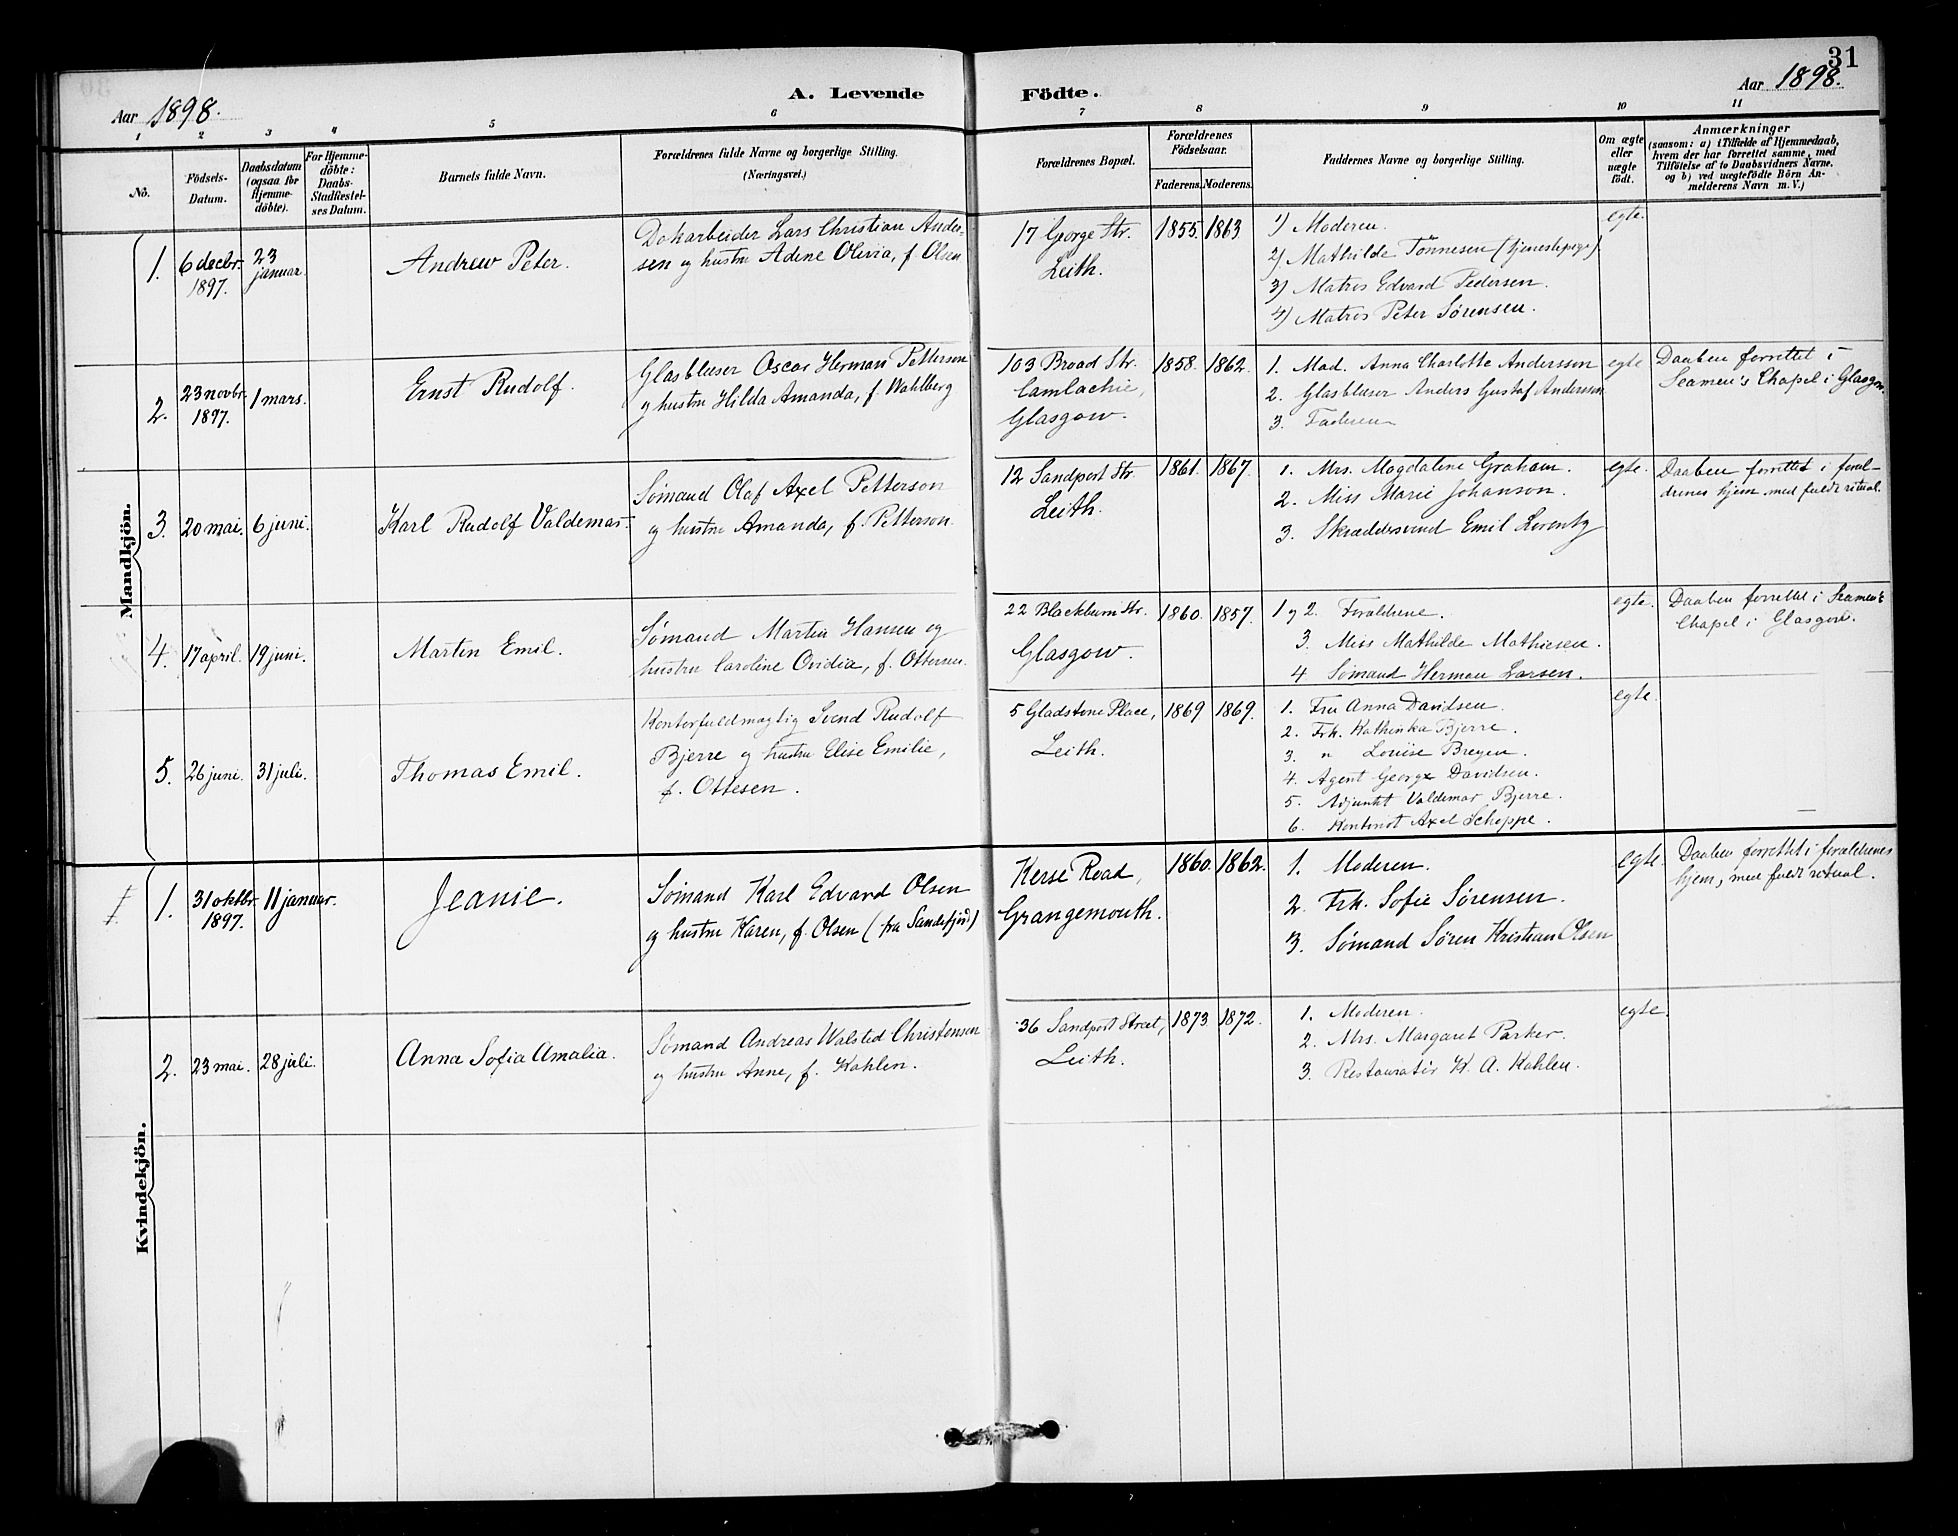 31
Aar 1898.
A. Levende Födte.
Aar 1898.
1 2 3 4 5 6 7 8 9 10 11
Nô.
Födsels-
Datum.
Daabsdatum
(ogsaa for
Hjemme-
döbte).
For Hjemme-
döbte:
Daabs-
Stadfæstel-
ses Datum.
Barnets fulde Navn.
Forældrenes fulde Navne og borgerlige Stilling.
(Næringsvei.)
Forældrenes Bopæl.
Forældrenes
Födselsaar.
Faderens. Moderens.
Faddernes Navne og borgerlige Stilling.
Om ægte
eller
uægte
födt.
Anmærkninger
(saasom: a) i Tilfælde af Hjemmedaab,
hvem der har forrettet samme, med
Tilföielse af to Daabsvidners Navne.
og b) ved uægtefödte Börn An-
melderens Navn m. V.)
Mandkjön.
1.
6 decbr.
1897.
23
januar.
Andrew Peter.
Dokarbeider Lars Christian Ander-
sen og hustru Adene Olivia, f. Olsen
17 George Str.
Leith.
1855. 1863
1) Moderen.
2) Mathilde Tönnesen (tjenestepige)
3) Matros Edvard Pedersen.
4) Matros Peter Sørensen.
egte.
2.
23 novbr.
1897.
1 mars.
Ernst Rudolf.
Glasblæser Oscar Herman Petterson
og hustru Hilda Amanda, f. Wahlberg
103 Broad Str.
Camlachie,
Glasgow.
1858. 1862.
1. Mad. Anna Charlotte Andersson
2. Glasblæser Anders Gustaf Andersson
3. Faderen
egte
Daaben forrettet i
Seamen's Chapel i Glasgow.
3.
20 mai.
6 juni.
Karl Rudolf Valdemar.
Sømand Olaf Axel Petterson
og hustru Amanda, f. Petterson.
12 Sandport Str.
Leith.
1861. 1867.
1. Mrs. Magdalene Graham.
2. Miss Marie Johanson.
3. Skræddersvend Emil Lorentz
egte.
Daaben forrettet i foræl-
drenes hjem med fuldt ritual.
4.
17 april.
19 juni.
Martin Emil.
Sømand Martin Hansen og
hustru Caroline Ovidia, f. Ottersen.
22 Blackburn Str.
Glasgow.
1860. 1857.
1 og 2. Forældrene.
3. Miss Mathilde Mathiesen.
4 Sømand Herman Larsen.
egte.
Daaben forrettet i Seamen's
Chapel i Glasgow.
5.
26 juni.
31 juli.
Thomas Emil.
Kontorfuldmægtig Svend Rudolf
Bjerre og hustru Elise Emilie,
f. Ottesen.
5 Gladstone Place,
Leith.
1869 1869.
1. Fru Anna Davidsen.
2. Frk. Kathinka Bjerre.
3. " Louise Breyen.
4. Agent George Davidsen.
5. Adjunkt Valdemar Bjerre.
6. Kontorist Axel Scheppe.
egte.
Kvindekjön.
1.
31 oktbr.
1897.
11 januar.
Jeanie.
Sømand Karl Edvard Olsen
og hustru Karen, f. Olsen (fra Sandefjord)
Kerse Road,
Grangemouth.
1860. 1862.
1. Moderen.
2. Frk. Sofie Sørensen.
3. Sømand Søren Kristian Olsen
egte.
Daaben forrettet i forældrenes
hjem, med fuldt ritual.
2.
23 mai.
28 juli.
Anna Sofia Amalia.
Sømand Andreas Walsted Christensen
og hustru Anne, f. Kahlen.
36 Sandport Street,
Leith.
1873 1872.
1. Moderen.
2. Mrs. Margaret Parker.
3. Restauratör K. A. Kahlen.
egte.